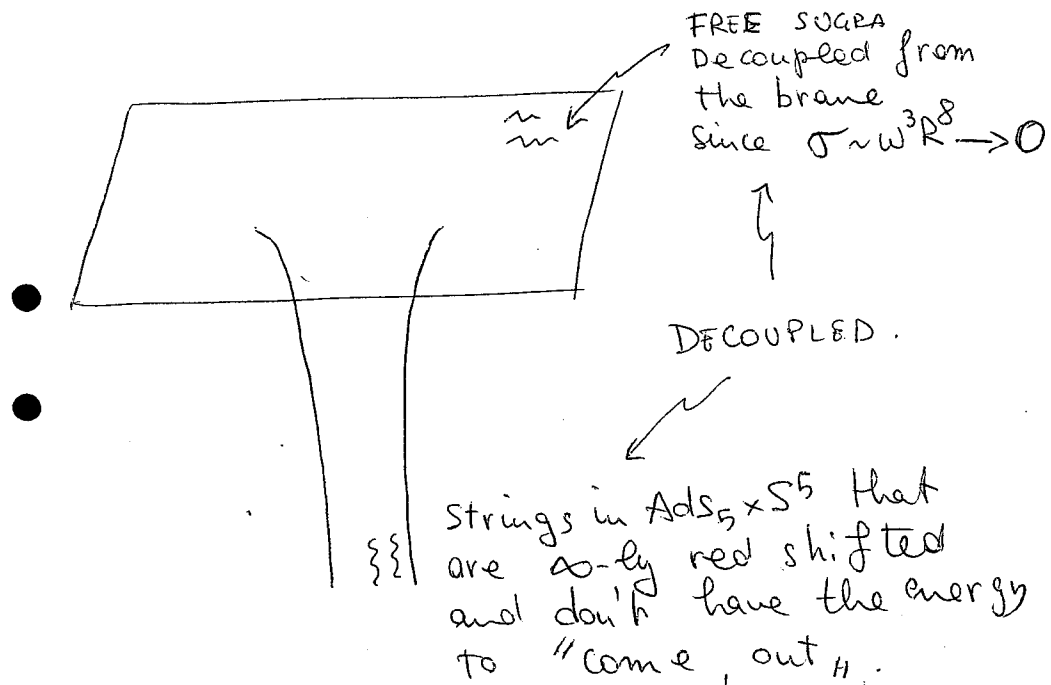 FREE SUGRA
Decoupled from
the brane
since σ ~ ω³R⁸ → 0
DECOUPLED.
Strings in AdS₅ × S⁵ that
are ∞-ly red shifted
and don't have the energy
to "come out".